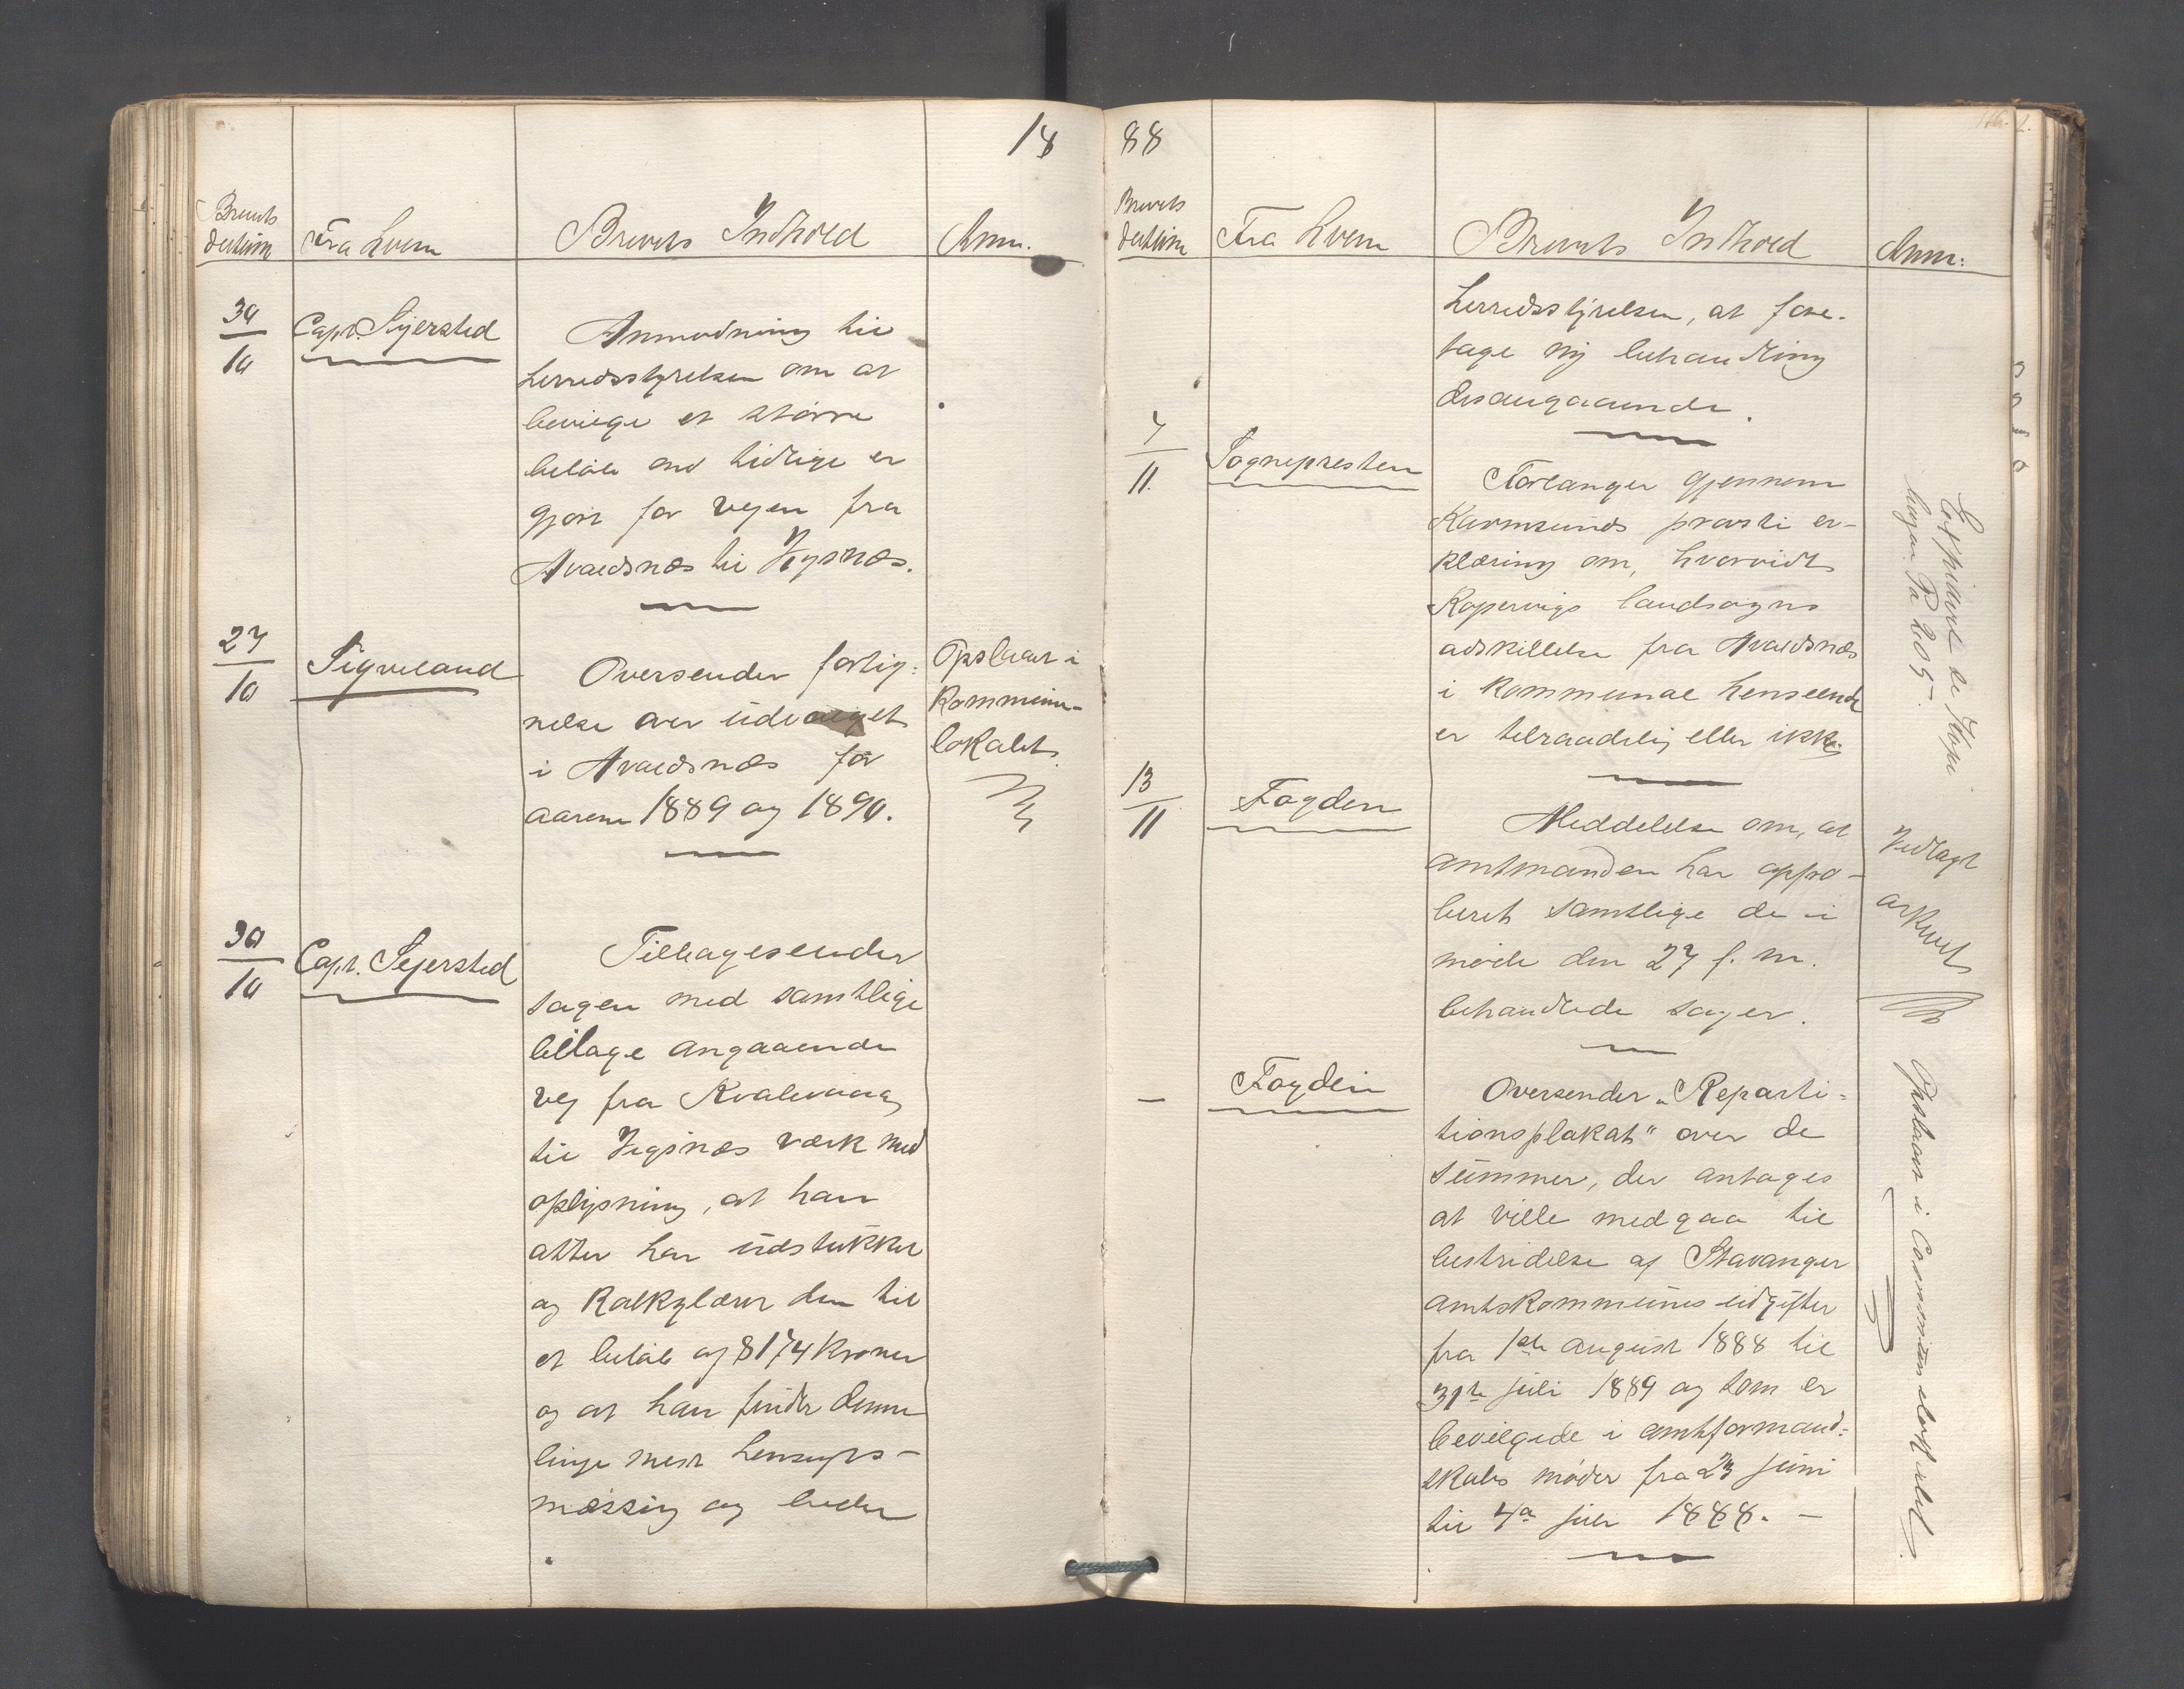 18
Brevets datum
Fra hvem
Brevets Indhold
Anm.
30/10
Capt. Sejersted
Anmodning til
herredsstyrelsen om at
bevilge et større
beløb end tidlige er
gjort for vejen fra
Avaldsnæs til Vigsnæs.
27/10
Sigveland
Oversender fortig-
nelse over udvalget
i Avaldsnæs for
aarene 1889 og 1890.
Opslaaet i
Kommune-
lokalet.
30/10
Capt. Sejersted
Tilbagesender
sagen med samtlige
bilage angaaende
vej fra Kvalevaag
til Vigsnæs værk med
oplysning, at han
atter har udstukket
og kalkylæret den til
et beløb af 8174 Kroner
og at han finder denne
linje mest hensigts-
mæssig og beder
88
Brevets datum
Fra hvem
Brevets Indhold
Anm:
herredsstyrelsen, at fore-
tage ny behandling
desangaaende.
7/11.
Sognepresten
Forlanger gjennem
Karmsunds provsti er-
klæring om, hvorvidt
Kopervigs landsogns
adskillelse fra Avaldsnæs
i kommunal henseende
er tilraadelig eller ikke.
13/11
Fogden
Meddelelse om, at
amtmanden har appro-
beret samtlige de i
møde den 27 f. m.
behandlede sager.
Vedlagt
arkivet
—
Fogden
Oversender „Reparti-
tionsplakat" over de
summer, der antages
at ville medgaa til
bestridelse af Stavanger
amtskommunes udgifter
fra 1ste august 1888 til
31te juli 1889 og som er
bevilgede i amtformand-
skabs møder fra 23 juni
til 4de juli 1888. —
Opslaaet i Communelokalet.